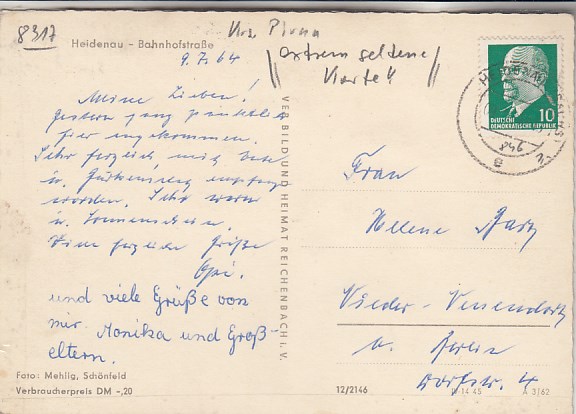 8317
Krs. Pirna
Heidenau - Bahnhofstraße
extrem seltene
Karte!!
9.7.64
Meine Lieben!
Gestern ganz pünktlich
hier angekommen.
Sehr herzlich, mit
u. empfangen
worden. Sehr warm
u. Sonnenschein.
Viele herzliche Grüße
Opi.
und viele Grüße von
mir Monika und Groß-
eltern.
Foto: Mehlig, Schönfeld
Verbraucherpreis DM -,20
VEB BILD UND HEIMAT REICHENBACH I. V.
10
DEUTSCHE
DEMOKRATISCHE REPUBLIK
Frau
Helene
Nieder-
b. Berlin
Dorfstr. 4
12/2146
A 3/62